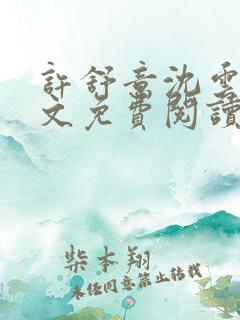 許舒意沈雲
文免費閱讀
柴本翔
未经同意禁止转载